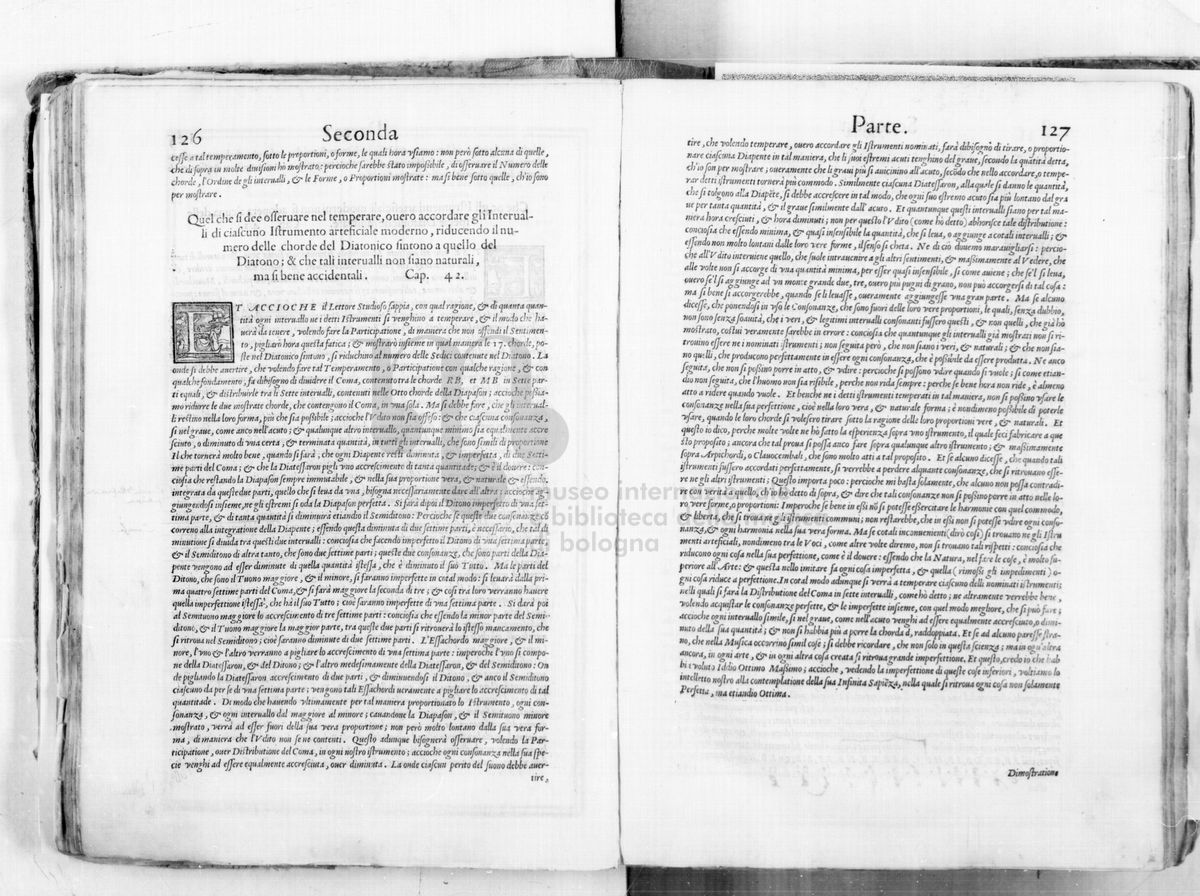 126 Seconda
cesse a tal temperamento, sotto le proportioni, o forme, le quali hora vsiamo: non però sotto alcuna di quelle,
che di sopra in molte diuisioni hò mostrato: percioche sarebbe stato impossibile, di osseruare il Numero delle
chorde, l'Ordine de gli interualli, & le Forme, o Proportioni mostrate: ma si bene sotto quelle, ch'io sono
per mostrare.
Quel che si dee osseruare nel temperare, ouero accordare gli Interual-
li di ciascuno Istrumento arteficiale moderno, riducendo il nu-
mero delle chorde del Diatonico sintono a quello del
Diatono; & che tali interualli non siano naturali,
ma si bene accidentali. Cap. 42.
ET ACCIOCHE il Lettore Studioso sappia, con qual ragione, & di quanta quan-
tità ogni interuallo ne i detti Istrumenti si venghino a temperare, & il modo che ha-
uerà da tenere, volendo fare la Participatione, di maniera che non offendi il Sentimen-
to, pigliarò hora questa fatica; & mostrarò insieme in qual maniera le 17. chorde, po-
ste nel Diatonico sintono, si riduchino al numero delle Sedici contenute nel Diatono. La
onde si debbe auertire, che volendo fare tal Temperamento, o Participatione con qualche ragione, & con
qualche fondamento, fa dibisogno di diuidere il Coma, contenuto tra le chorde RB, et MB in Sette par-
ti equali, & distribuirle tra li Sette interualli, contenuti nelle Otto chorde della Diapason; accioche possia-
mo ridurre le due mostrate chorde, che contengono il Coma, in vna sola. Ma si debbe fare, che gli interual-
li restino nella loro forma, più che sia possibile; accioche l'Vdito non sia offeso: & che ciascuna consonanza,
si nel graue, come anco nell'acuto; & qualunque altro interuallo, quantunque minimo sia equalmente accre
sciuto, o diminuto di vna certa, & terminata quantità, in tutti gli interualli, che sono simili di proportione
Il che tornerà molto bene, quando si farà; che ogni Diapente resti diminuta, & imperfetta, di due Setti-
me parti del Coma; & che la Diatessaron pigli vno accrescimento di tanta quantitade; & è il douere: con-
ciosia che restando la Diapason sempre immutabile, & nella sua proportione vera, & naturale & essendo
integrata da queste due parti, quello che si leua da vna, bisogna necessariamente dare all'altra; accioche ag-
giungendosi insieme, ne gli estremi si oda la Diapason perfetta. Si farà dipoi il Ditono imperfetto di vna set-
tima parte, & di tanta quantità si diminuirà etiandio il Semiditono: Percioche se queste due consonanze cō
corrono alla integratione della Diapente; essendo questa diminuta di due settime parti, è necessario, che tal di
minutione si diuida tra questi due interualli: conciosia che facendo imperfetto il Ditono di vna settima parte,
& il Semiditono di altra tanto, che sono due settime parti; queste due consonanze, che sono parti della Dia-
pente vengono ad esser diminute di quella quantità istessa, che è diminuto il suo Tutto. Ma le parti del
Ditono, che sono il Tuono maggiore, & il minore, si faranno imperfette in cotal modo: si leuarà dalla pri-
ma quattro settime parti del Coma, & si farà maggiore la seconda di tre; & cosi tra loro verranno hauere
quella imperfettione istessa, che hà il suo Tutto; cioè saranno imperfette di vna settima parte. Si darà poi
al Semituono maggiore lo accrescimento di tre settime parti: conciosia che essendo la minor parte del Semi-
ditono, & il Tuono maggiore la maggior parte, tra queste due parti si ritrouerà lo istesso mancamento, che
si ritroua nel Semiditono; cioè saranno diminute di due settime parti. L'Essachordo maggiore, & il mi-
nore, l'vno & l'altro verranno a pigliare lo accrescimento di vna settima parte: imperoche l'vno si compo-
ne della Diatessaron, & del Ditono; & l'altro medesimamente della Diatessaron, & del Semiditono: On
de pigliando la Diatessaron accrescimento di due parti, & diminuendosi il Ditono, & anco il Semiditono
ciascuno da per se di vna settima parte; vengono tali Essachordi veramente a pigliare lo accrescimento di tal
quantitade. Di modo che hauendo vltimamente per tal maniera proportionato lo Istrumento, ogni con-
sonanza, & ogni interuallo dal maggiore al minore; cauandone la Diapason, & il Semituono minore
mostrato, verrà ad esser fuori della sua vera proportione; non però molto lontano dalla sua vera for-
ma, di maniera che l'Vdito non se ne contenti. Questo adunque bisognerà osseruare, volendo la Par-
ticipatione, ouer Distributione del Coma, in ogni nostro istrumento; accioche ogni consonanza nella sua spe-
cie venghi ad essere equalmente accresciuta, ouer diminuta. La onde ciascun perito del suono debbe auer-
tire,
Parte. 127
tire, che volendo temperare, ouero accordare gli Istrumenti nominati, farà dibisogno di tirare, o proportio-
nare ciascuna Diapente in tal maniera, che li suoi estremi acuti tenghino del graue, secondo la quantità detta,
ch'io son per mostrare; oueramente che li graui più si auicinino all'acuto, secōdo che nello accordare, o tempe-
rar detti istrumenti tornerà più commodo. Similmente ciascuna Diatessaron, alla quale si danno le quantità,
che si tolgono alla Diapēte, si debbe accrescere in tal modo, che ogni suo estremo acuto sia più lontano dal gra
ue per tanta quantità, & il graue similmente dall'acuto. Et quantunque questi interualli siano per tal ma-
niera hora cresciuti, & hora diminuti; non per questo l'Vdito (come hò detto) abhorisce tale distributione:
conciosia che essendo minima, & quasi insensibile la quantità, che si leua, o aggiunge a cotali interualli; &
essendo non molto lontani dalle loro vere forme, il senso si cheta. Ne di ciò douemo marauigliarsi: percio-
che all'Vdito interuiene quello, che suole intrauenire a gli altri sentimenti, & maßimamente al Vedere, che
alle volte non si accorge di vna quantità minima, per esser quasi insensibile, si come auiene; che se'l si leua,
ouero se'l si aggiunge ad vn monte grande due, tre, ouero più pugni di grano, non può accorgersi di tal cosa:
ma si bene si accorgerebbe, quando se li leuasse, oueramente aggiungesse vna gran parte. Ma se alcuno
dicesse, che ponendosi in vso le Consonanze, che sono fuori delle loro vere proportioni, le quali, senza dubbio,
non sono senza soauità, che i veri, & legitimi interualli consonanti fussero questi, & non quelli, che già hò
mostrato, costui veramente sarebbe in errore: conciosia che quantunque gli interualli già mostrati non si ri-
trouino essere ne i nominati istrumenti; non seguita però, che non siano i veri, & naturali; & che non sia-
no quelli, che producono perfettamente in essere ogni consonanza, che è poßibile da essere produtta. Ne anco
seguita, che non si poßino porre in atto, & vdire: percioche si possono vdire quando si vuole; si come etian-
dio non seguita, che l'huomo non sia risibile, perche non rida sempre: perche se bene hora non ride, è almeno
atto a ridere quando vuole. Et benche ne i detti istrumenti temperati in tal maniera, non si poßino vsare le
consonanze nella sua perfettione, cioè nella loro vera, & naturale forma; è nondimeno poßibile di poterle
vsare, quando le loro chorde si volesero tirare sotto la ragione delle loro proportioni vere, & naturali. Et
questo io dico, perche molte volte ne hò fatto la esperienza sopra vno istrumento, il quale feci fabricare a que
sto proposito; ancora che tal proua si possa anco fare sopra qualunque altro istrumento; & maßimamente
sopra Arpichordi, o Clauocembali, che sono molto atti a tal proposito. Et se alcuno dicesse, che quando tali
istrumenti fussero accordati perfettamente, si verrebbe a perdere alquante consonanze, che si ritrouano esse-
re ne gli altri istrumenti; Questo importa poco: percioche mi basta solamente, che alcuno non possa contradi-
re con verità a quello, ch'io hò detto di sopra, & dire che tali consonanze non si poßino porre in atto nelle lo-
ro vere forme, o proportioni: Imperoche se bene in eßi nō si potesse essercitare le harmonie con quel commodo,
& libertà, che si troua ne gli istrumenti communi; non restarebbe, che in eßi non si potesse vdire ogni conso-
nanza, & ogni harmonia nella sua vera forma. Ma se cotali inconuenienti (dirò cosi) si trouano ne gli Istru
menti arteficiali, nondimeno tra le Voci, come altre volte diremo, non si trouano tali rispetti: conciosia che
riducono ogni cosa nella sua perfettione, come è il douere: essendo che la Natura, nel fare le cose, è molto su-
periore all'Arte: & questa nello imitare fa ogni cosa imperfetta, & quella (rimoßi gli impedimenti) o-
gni cosa riduce a perfettione. In cotal modo adunque si verrà a temperare ciascuno delli nominati istrumenti;
nelli quali si farà la Distributione del Coma in sette interualli, come hò detto; ne altramente verrebbe bene,
volendo acquistar le consonanze perfette, & le imperfette insieme, con quel modo megliore, che si può fare;
accioche ogni interuallo simile, si nel graue, come nell'acuto venghi ad essere equalmente accresciuto, o dimi-
nuto della sua quantità; & non si habbia più a porre la chorda d, raddoppiata. Et se ad alcuno paresse stra-
no, che nella Musica occorrino simil cose; si debbe ricordare, che non solo in questa scienza; ma in ogn'altra
ancora, in ogni arte, & in ogni altra cosa creata si ritroua grande imperfettione. Et questo, credo io che hab
bi voluto Iddio Ottimo Maßimo; accioche, vedendo la imperfettione di queste cose inferiori, voltiamo lo
intelletto nostro alla contemplatione della sua Infinita Sapiēza, nella quale si ritroua ogni cosa non solamente
Perfetta, ma etiandio Ottima.
Dimostratione
museo internazionale
biblioteca
bologna